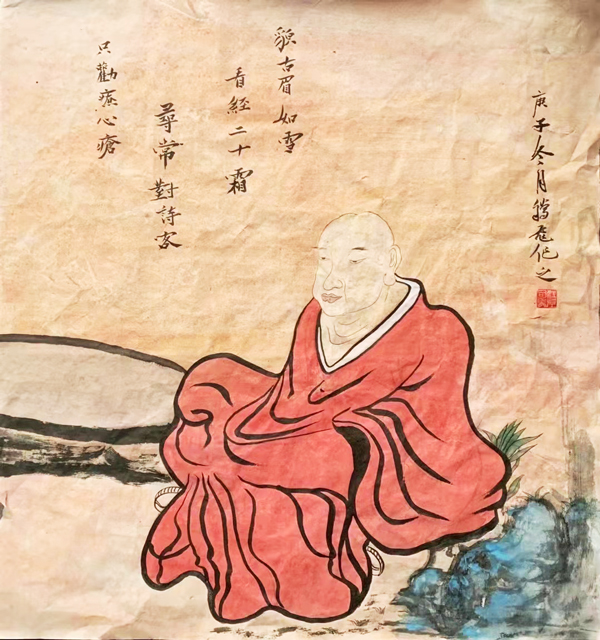 貌古眉如雪
看經二十霜
尋常對詩客
只勸療心瘡
庚子冬月飛作之